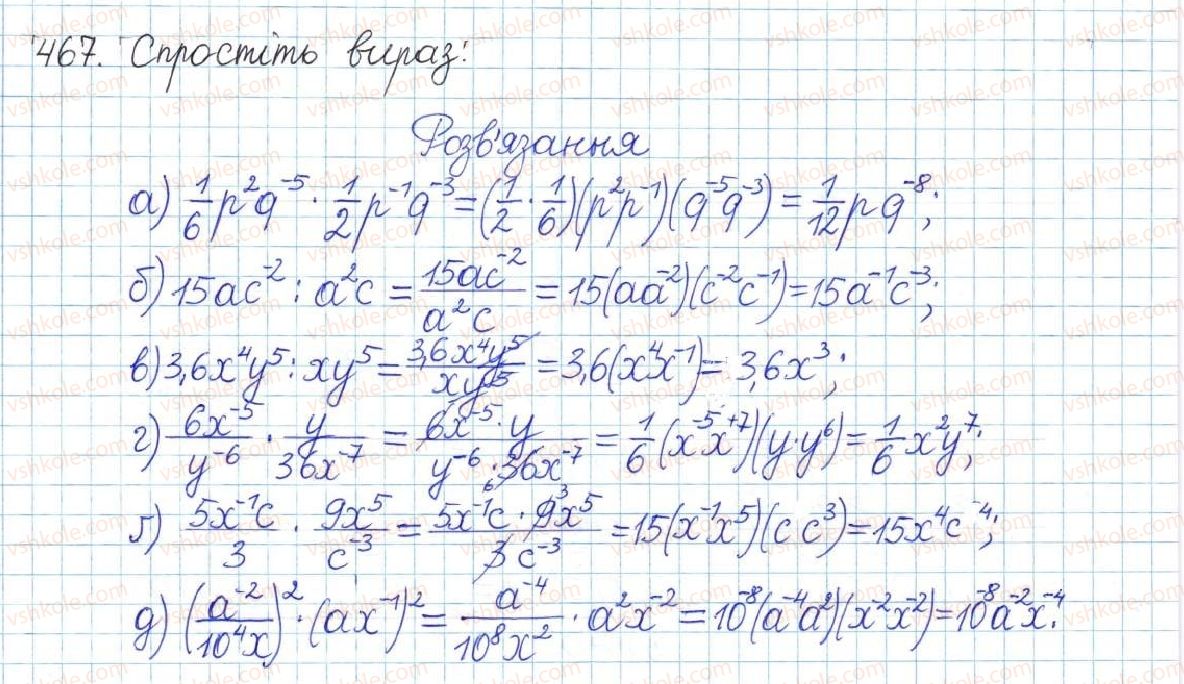 467. Спростіть вираз:
Розв'язання
а) 1/6 p²q⁻⁵ · 1/2 p⁻¹q⁻³ = (1/2 · 1/6)(p²p⁻¹)(q⁻⁵q⁻³) = 1/12 pq⁻⁸;
б) 15ac⁻² : a²c = 15ac⁻²/a²c = 15(aa⁻²)(c⁻²c⁻¹) = 15a⁻¹c⁻³;
в) 3,6x⁴y⁵ : xy⁵ = 3,6x⁴y⁵/xy⁵ = 3,6(x⁴x⁻¹) = 3,6x³;
г) 6x⁻⁵/y⁻⁶ · y/36x⁻⁷ = 6x⁻⁵·y/y⁻⁶·36x⁻⁷ 6 = 1/6 (x⁻⁵x⁺⁷)(y·y⁶) = 1/6 x²y⁷;
ґ) 5x⁻¹c/3 · 9x⁵/c⁻³ = 5x⁻¹c · 9³x⁵/3c⁻³ = 15(x⁻¹x⁵)(c c³) = 15x⁴c⁻⁴;
д) (a⁻²/10⁴x)² · (ax⁻¹)² = a⁻⁴/10⁸x² · a²x⁻² = 10⁻⁸(a⁻⁴a²)(x⁻²x⁻²) = 10⁻⁸a⁻²x⁻⁴.
vshkole.com